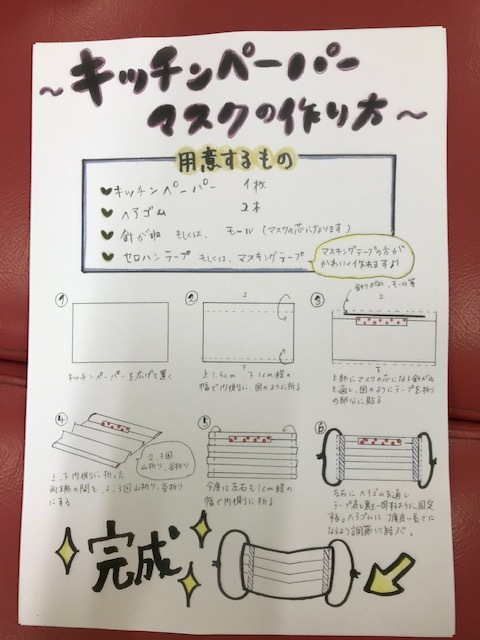 ～キッチンペーパー
マスクの作り方～
用意するもの
キッチンペーパー 1枚
ヘアゴム 2本
針がね もしくは、モール（マスクの芯になります）
セロハンテープ もしくは、マスキングテープ
マスキングテープの方が
かわいく作れます♪
①
キッチンペーパーを広げて置く
②
上
下
上1.5cm、下1cm程の
幅で内側に、図のように折る
③
針がね、モール等
上
下
上部にマスクの芯になる針がねを
通し、図のようにテープを折り
の部分に貼る
④
2、3回
山折り、谷折り
上、下内側に折った
両端の間を、2、3回山折り、谷折り
にする
⑤
今度は左右も1cm程の
幅で内側に折る
⑥
左右にヘアゴムを通し
テープで表も裏も一周するように固定
する。ヘアゴムは丁度良い長さに
なるよう調節して結ぶ。
完成